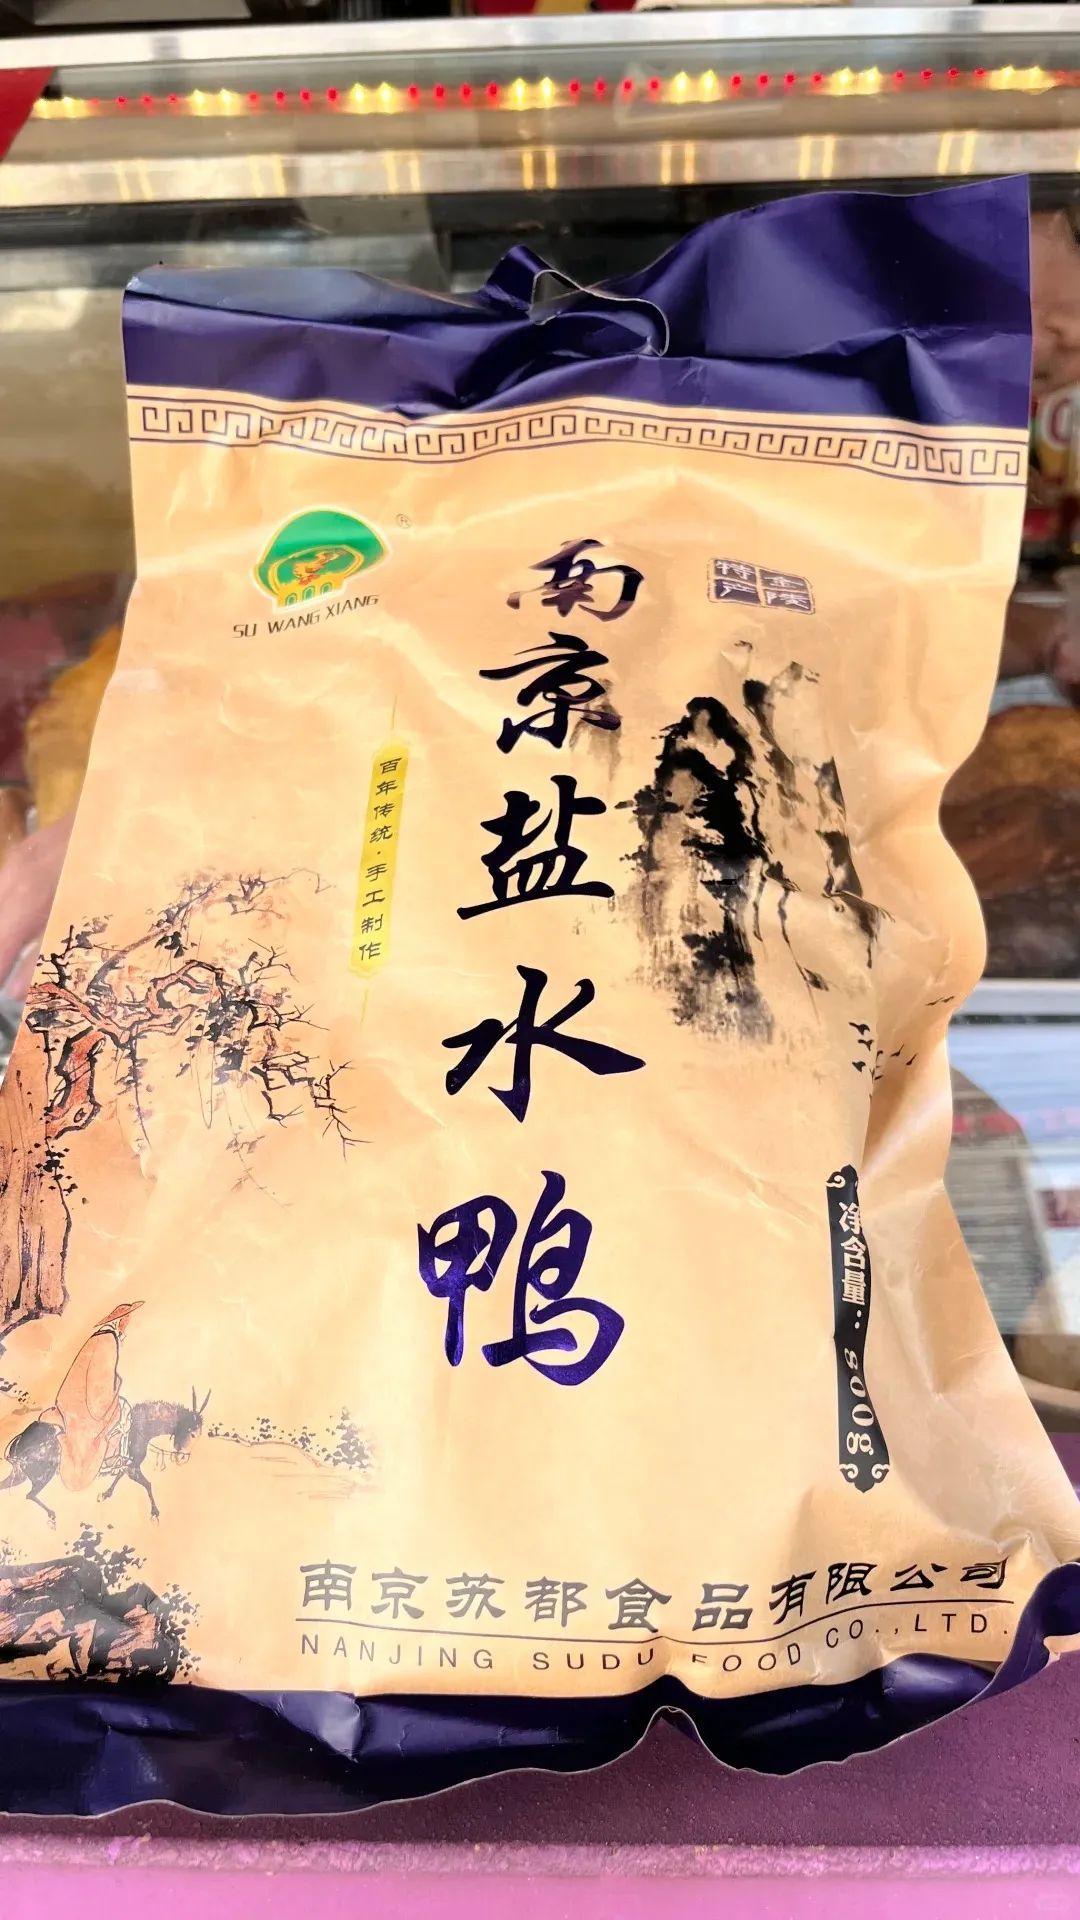 SU WANG XIANG
®
南京盐水鸭
金陵
特产
百年传统·手工制作
净含量：800g
南京苏都食品有限公司
NANJING SUDU FOOD CO.,LTD.